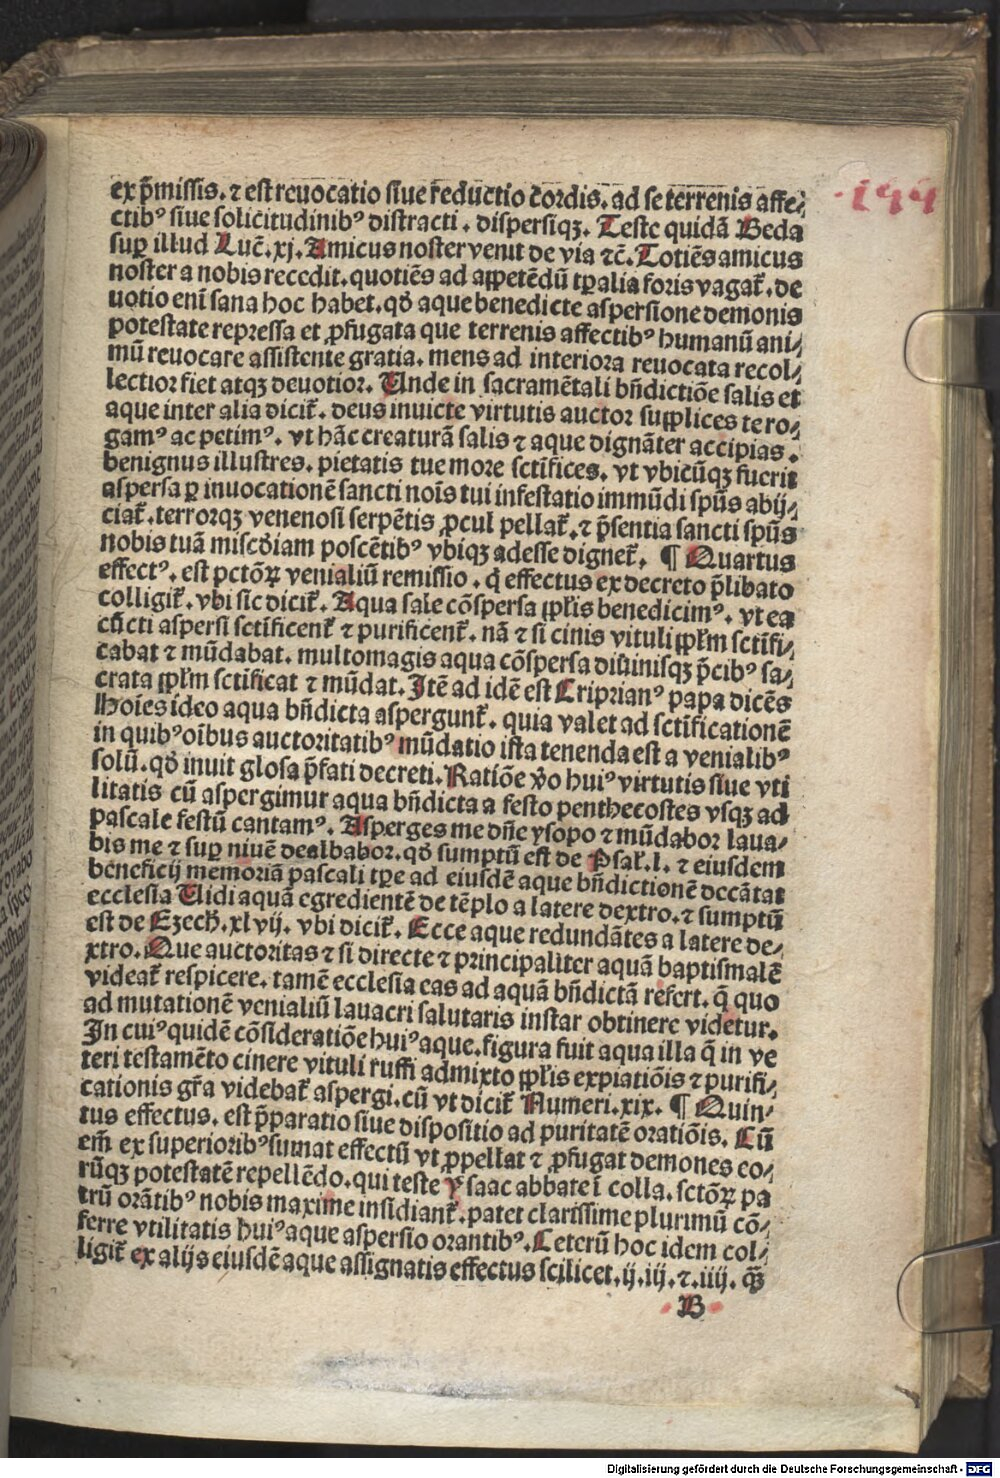 ex p̄missis. ⁊ est reuocatio siue reductio cordis. ad se terrenis affe⸗
ctibꝰ siue solicitudinibꝰ distracti. dispersiqꝫ. Teste quidā Beda
suꝑ illud Luc̄. xj. Amicus noster venit de via ⁊c̄. Totiēs amicus
noster a nobis recedit. quotiēs ad appetēdū tꝑalia foris vagat̄. de
uotio enī sana hoc habet. qđ aque benedicte aspersione demonis
potestate repressa et ꝓfugata que terrenis affectibꝰ humanū ani⸗
mū reuocare assistente gratia. mens ad interiora reuocata recol⸗
lectior fiet atqꝫ deuotior. Unde in sacramētali bn̄dictiōe salis et
aque inter alia dicit̄. deus inuicte virtutis auctor supplices te ro⸗
gamꝰ ac petimꝰ. vt hāc creaturā salis ⁊ aque dignāter accipias.
benignus illustres. pietatis tue more sctīfices. vt vbicūqꝫ fuerit
aspersa ꝑ inuocationē sancti noīs tui infestatio immūdi spūs abij⸗
ciat̄. terrorqꝫ venenosi serpētis ꝓcul pellat̄. ⁊ p̄sentia sancti spūs
nobis tuā miscđiam poscētibꝰ vbiqꝫ adesse dignet̄. ¶ Quartus
effectꝰ. est pctōꝝ venialiū remissio. q̄ effectus ex decreto p̄libato
colligit̄. vbi sic dicit̄. Aqua sale cōspersa ppl̄is benedicimꝰ. vt ea
cūcti aspersi sctīficent̄ ⁊ purificent̄. nā ⁊ si cinis vituli ppl̄m sctīfi⸗
cabat ⁊ mūdabat. multomagis aqua cōspersa diuinisqꝫ p̄cibꝰ sa⸗
crata ppl̄m sctīficat ⁊ mūdat. Itē ad idē est Criprianꝰ papa dicēs
Hoīes ideo aqua bn̄dicta aspergunt̄. quia valet ad sctīficationē
in quibꝰ oībus auctoritatibꝰ mūdatio ista tenenda est a venialibꝰ
solū. qđ inuit glosa p̄fati decreti. Ratiōe v̄o huiꝰ virtutis siue vti
litatis cū aspergimur aqua bn̄dicta a festo penthecostes vsqꝫ ad
pascale festū cantamꝰ. Asperges me dn̄e ysopo ⁊ mūdabor laua⸗
bis me ⁊ suꝑ niuē dealbabor. qđ sumptū est de Psal̄. l. ⁊ eiusdem
beneficij memoriā pascali tꝑe ad eiusdē aque bn̄dictionē decātat
ecclesia Uidi aquā egredientē de tēplo a latere dextro. ⁊ sumptū
est de Ezech̄. xlvij. vbi dicit̄. Ecce aque redundātes a latere de⸗
xtro. Que auctoritas ⁊ si directe ⁊ principaliter aquā baptismalē
videat̄ respicere. tamē ecclesia eas ad aquā bn̄dictā refert. q̄ quo
ad mutationē venialiū lauacri salutaris instar obtinere videtur.
In cuiꝰ quidē cōsideratiōe huiꝰ aque. figura fuit aqua illa q̄ in ve
teri testamēto cinere vituli ruffi admixto ppl̄is expiatiōis ⁊ purifi⸗
cationis gr̄a videbat̄ aspergi. cū vt dicit̄ Numeri. xix. ¶ Quin⸗
tus effectus. est p̄paratio siue dispositio ad puritatē oratiōis. Cū
em̄ ex superioribꝰ sumat effectū vt ꝓpellat ⁊ ꝓfugat demones eo⸗
rūqꝫ potestatē repellēdo. qui teste Ysaac abbate ī colla. sctōꝝ pa
trū orātibꝰ nobis maxime insidiant̄. patet clarissime plurimū cō⸗
ferre vtilitatis huiꝰ aque aspersio orantibꝰ. Ceterū hoc idem col⸗
ligit̄ ex alijs eiusdē aque assignatis effectus scilicet. ij. iij. ⁊. iiij. qꝫ
B
·144
Digitalisierung gefördert durch die Deutsche Forschungsgemeinschaft - DFG